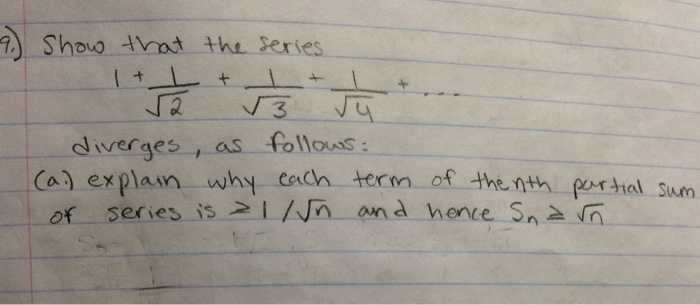 9.) Show that the series
1 + 1/√2 + 1/√3 + 1/√4 + ...
diverges, as follows:
(a.) explain why each term of the nth partial sum
of series is ≥ 1/√n and hence Sn ≥ √n